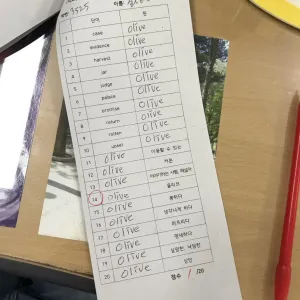 3525 이름:
단어 뜻
1 case olive
2 evidence olive
3 harvest olive
4 jar olive
5 judge olive
6 palace olive
7 promise olive
8 return olive
9 rotten olive
10 upset olive
11 olive 이용할 수 있는
12 olive 
13 olive
14 olive 올리브
15 olive
16 olive 생각나게 하다
17 olive
18 olive
19 olive 실망한, 낙담한
20 olive 상인
점수 1 /20